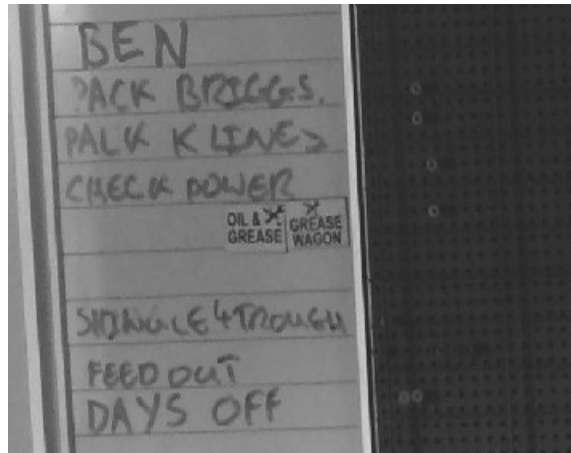 BEN
PACK BRIGGS.
PACK K LINES
CHECK POWER
OIL & GREASE
GREASE WAGON
SHINGLE 4 TROUGH
FEED OUT
DAYS OFF